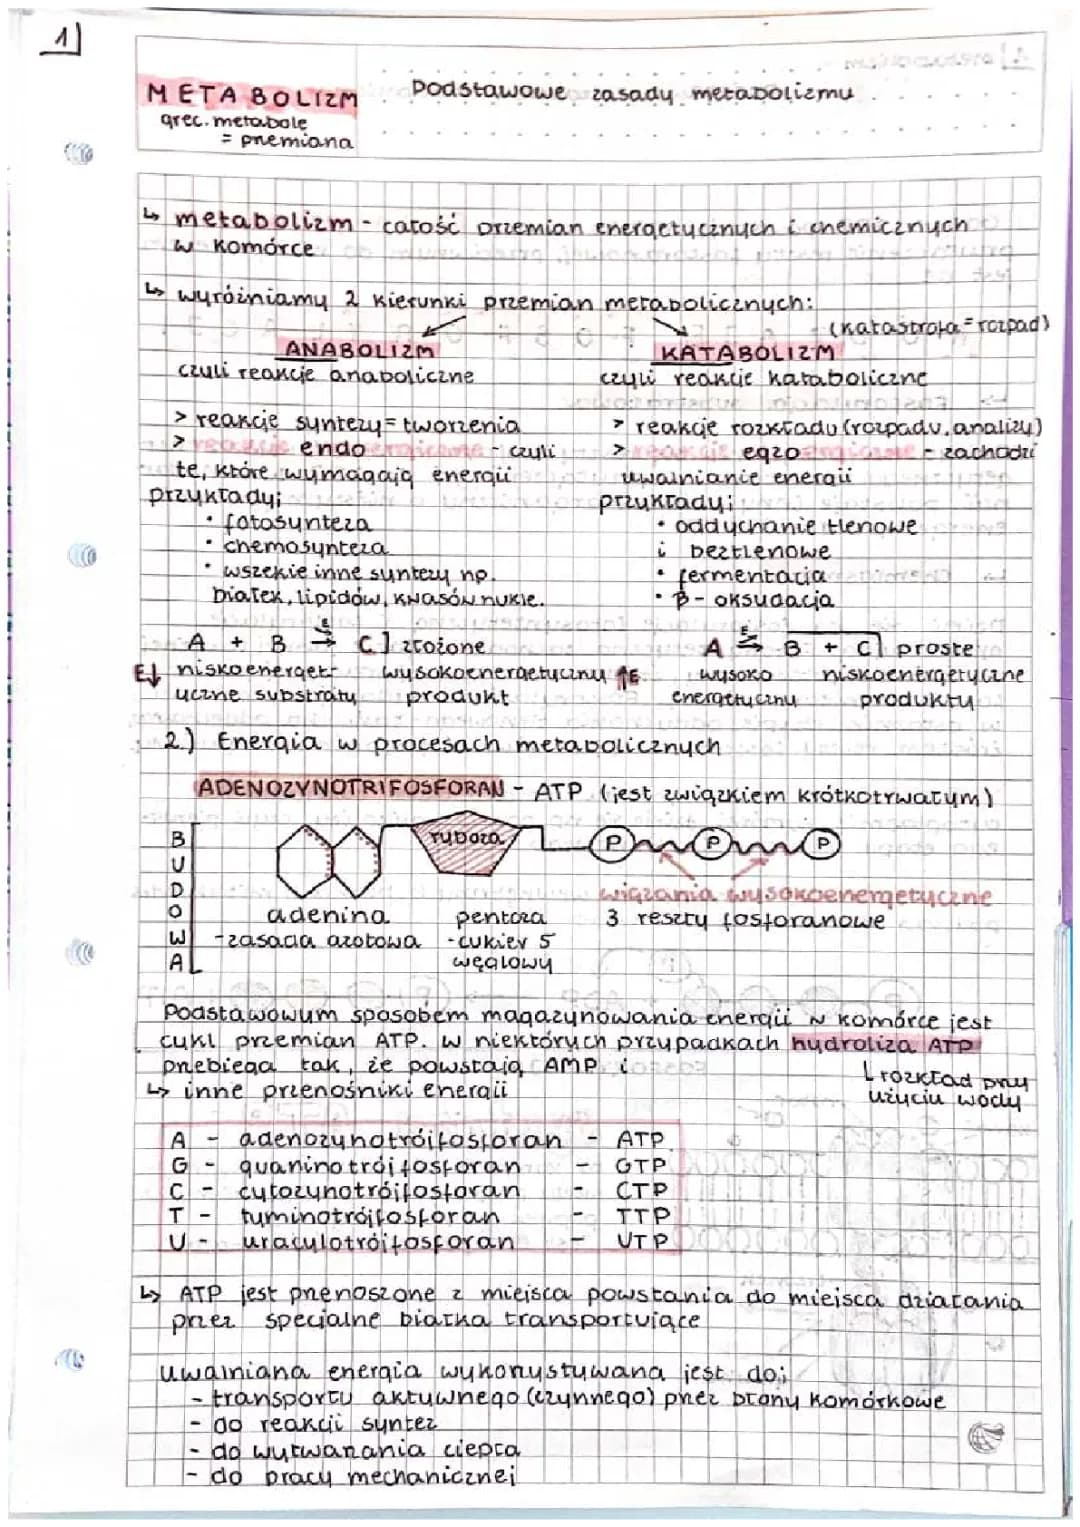 1)
METABOLIZM
grec. metabole
= przemiana
Podstawowe zasady metabolizmu
↳ metabolizm - całość przemian energetycznych i chemicznych
w komórce
↳ wyróżniamy 2 kierunki przemian metabolicznych:
(katastrofa = rozpad)
ANABOLIZM
czyli reakcje anaboliczne
> reakcje syntezy = tworzenia
> reakcje endoergiczne - czyli
te, które wymagają energii
przykłady:
• fotosynteza
• chemosynteza
• wszelkie inne syntezy np.
białek, lipidów, kwasów nukle.
A + B →E C] złożone
E↓ niskoenerget- wysokoenergetyczny ↑E
yczne substraty produkt
KATABOLIZM
czyli reakcje kataboliczne
> reakcje rozkładu (rozpadu, analizy)
> reakcje egzoergiczne - zachodzi
uwalnianie energii
przykłady:
• oddychanie tlenowe
i beztlenowe
• fermentacja
• β - oksydacja
A →E B + C] proste
wysoko niskoenergetyczne
energetyczny produkty
2.) Energia w procesach metabolicznych
ADENOZYNOTRIFOSFORAN - ATP (jest związkiem krótkotrwałym)
BUDOWA
ryboza P P P
wiązania wysokoenergetyczne
adenina pentoza 3 reszty fosforanowe
-zasada azotowa -cukier 5
węglowy
Podstawowym sposobem magazynowania energii w komórce jest
cykl przemian ATP. W niektórych przypadkach hydroliza ATP
przebiega tak, że powstają AMP i
└ rozkład przy
użyciu wody
↳ inne przenośniki energii
A - adenozynotrójfosforan - ATP
G - guaninotrójfosforan - GTP
C - cytozynotrójfosforan - CTP
T - tyminotrójfosforan - TTP
U - uracylotrójfosforan - UTP
↳ ATP jest przenoszone z miejsca powstania do miejsca działania
przez specjalne białka transportujące
Uwalniana energia wykorzystywana jest do:
- transportu aktywnego (czynnego) przez błony komórkowe
- do reakcji syntez
- do wytwarzania ciepła
- do pracy mechanicznej